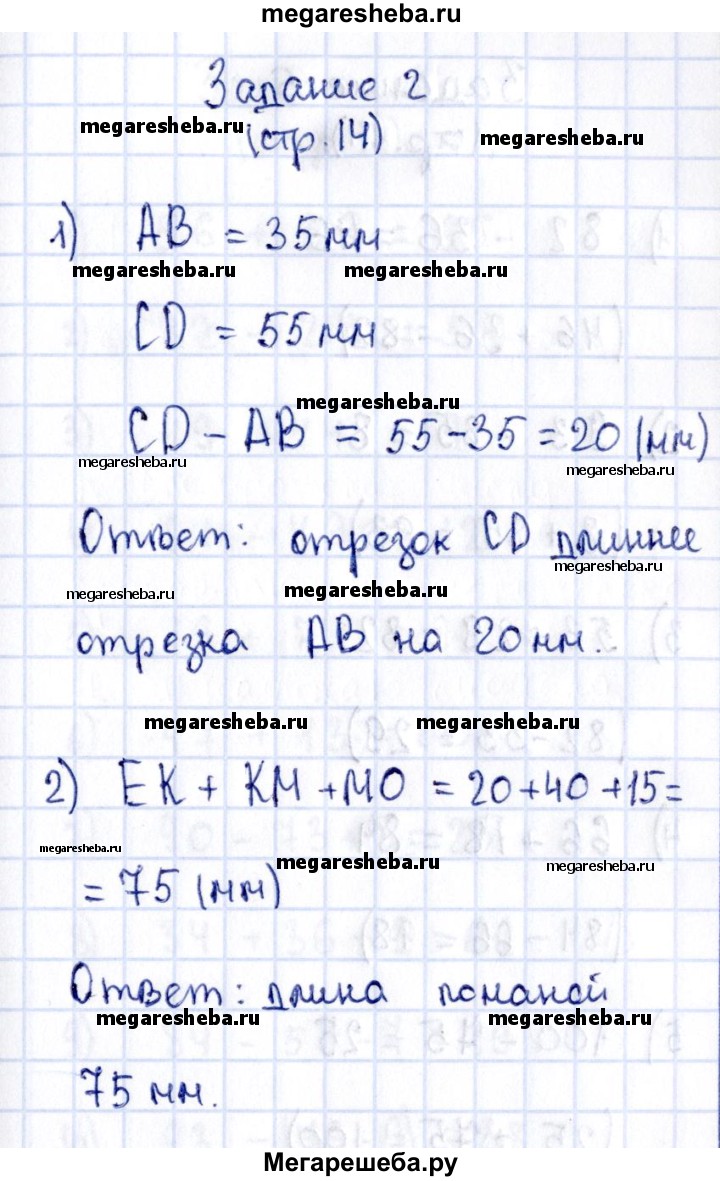 megaresheba.ru
Задание 2
megaresheba.ru
(стр. 14)
megaresheba.ru
1) AB = 35 мм
megaresheba.ru megaresheba.ru
CD = 55 мм
megaresheba.ru
CD - AB = 55-35 = 20 (мм)
megaresheba.ru megaresheba.ru
Ответ: отрезок CD длиннее
megaresheba.ru
megaresheba.ru megaresheba.ru
отрезка AB на 20 мм.
megaresheba.ru megaresheba.ru
2) EK + KM + MO = 20+40+15=
megaresheba.ru megaresheba.ru megaresheba.ru
= 75 (мм)
Ответ: длина ломаной
megaresheba.ru megaresheba.ru
75 мм.
Мегарешеба.ру